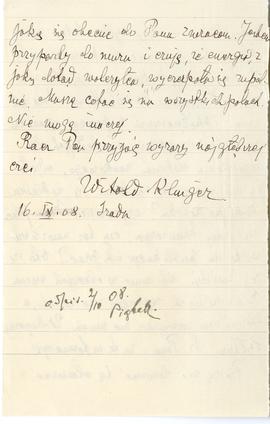 jaką się obecnie do Pana zwracam. Jestem
przyparty do muru i czuję, że energia, z
jaką dotąd walczyłem, wyczerpała się zupeł
nie. Muszę cofać się na wszystkich polach.
Nie mogę inaczej.
Racz Pan przyjąć wyrazy najgłębszej
czci
Witold Klinger
16. IX. 08. Środa
odpis. 2/10 08.
Piątek.